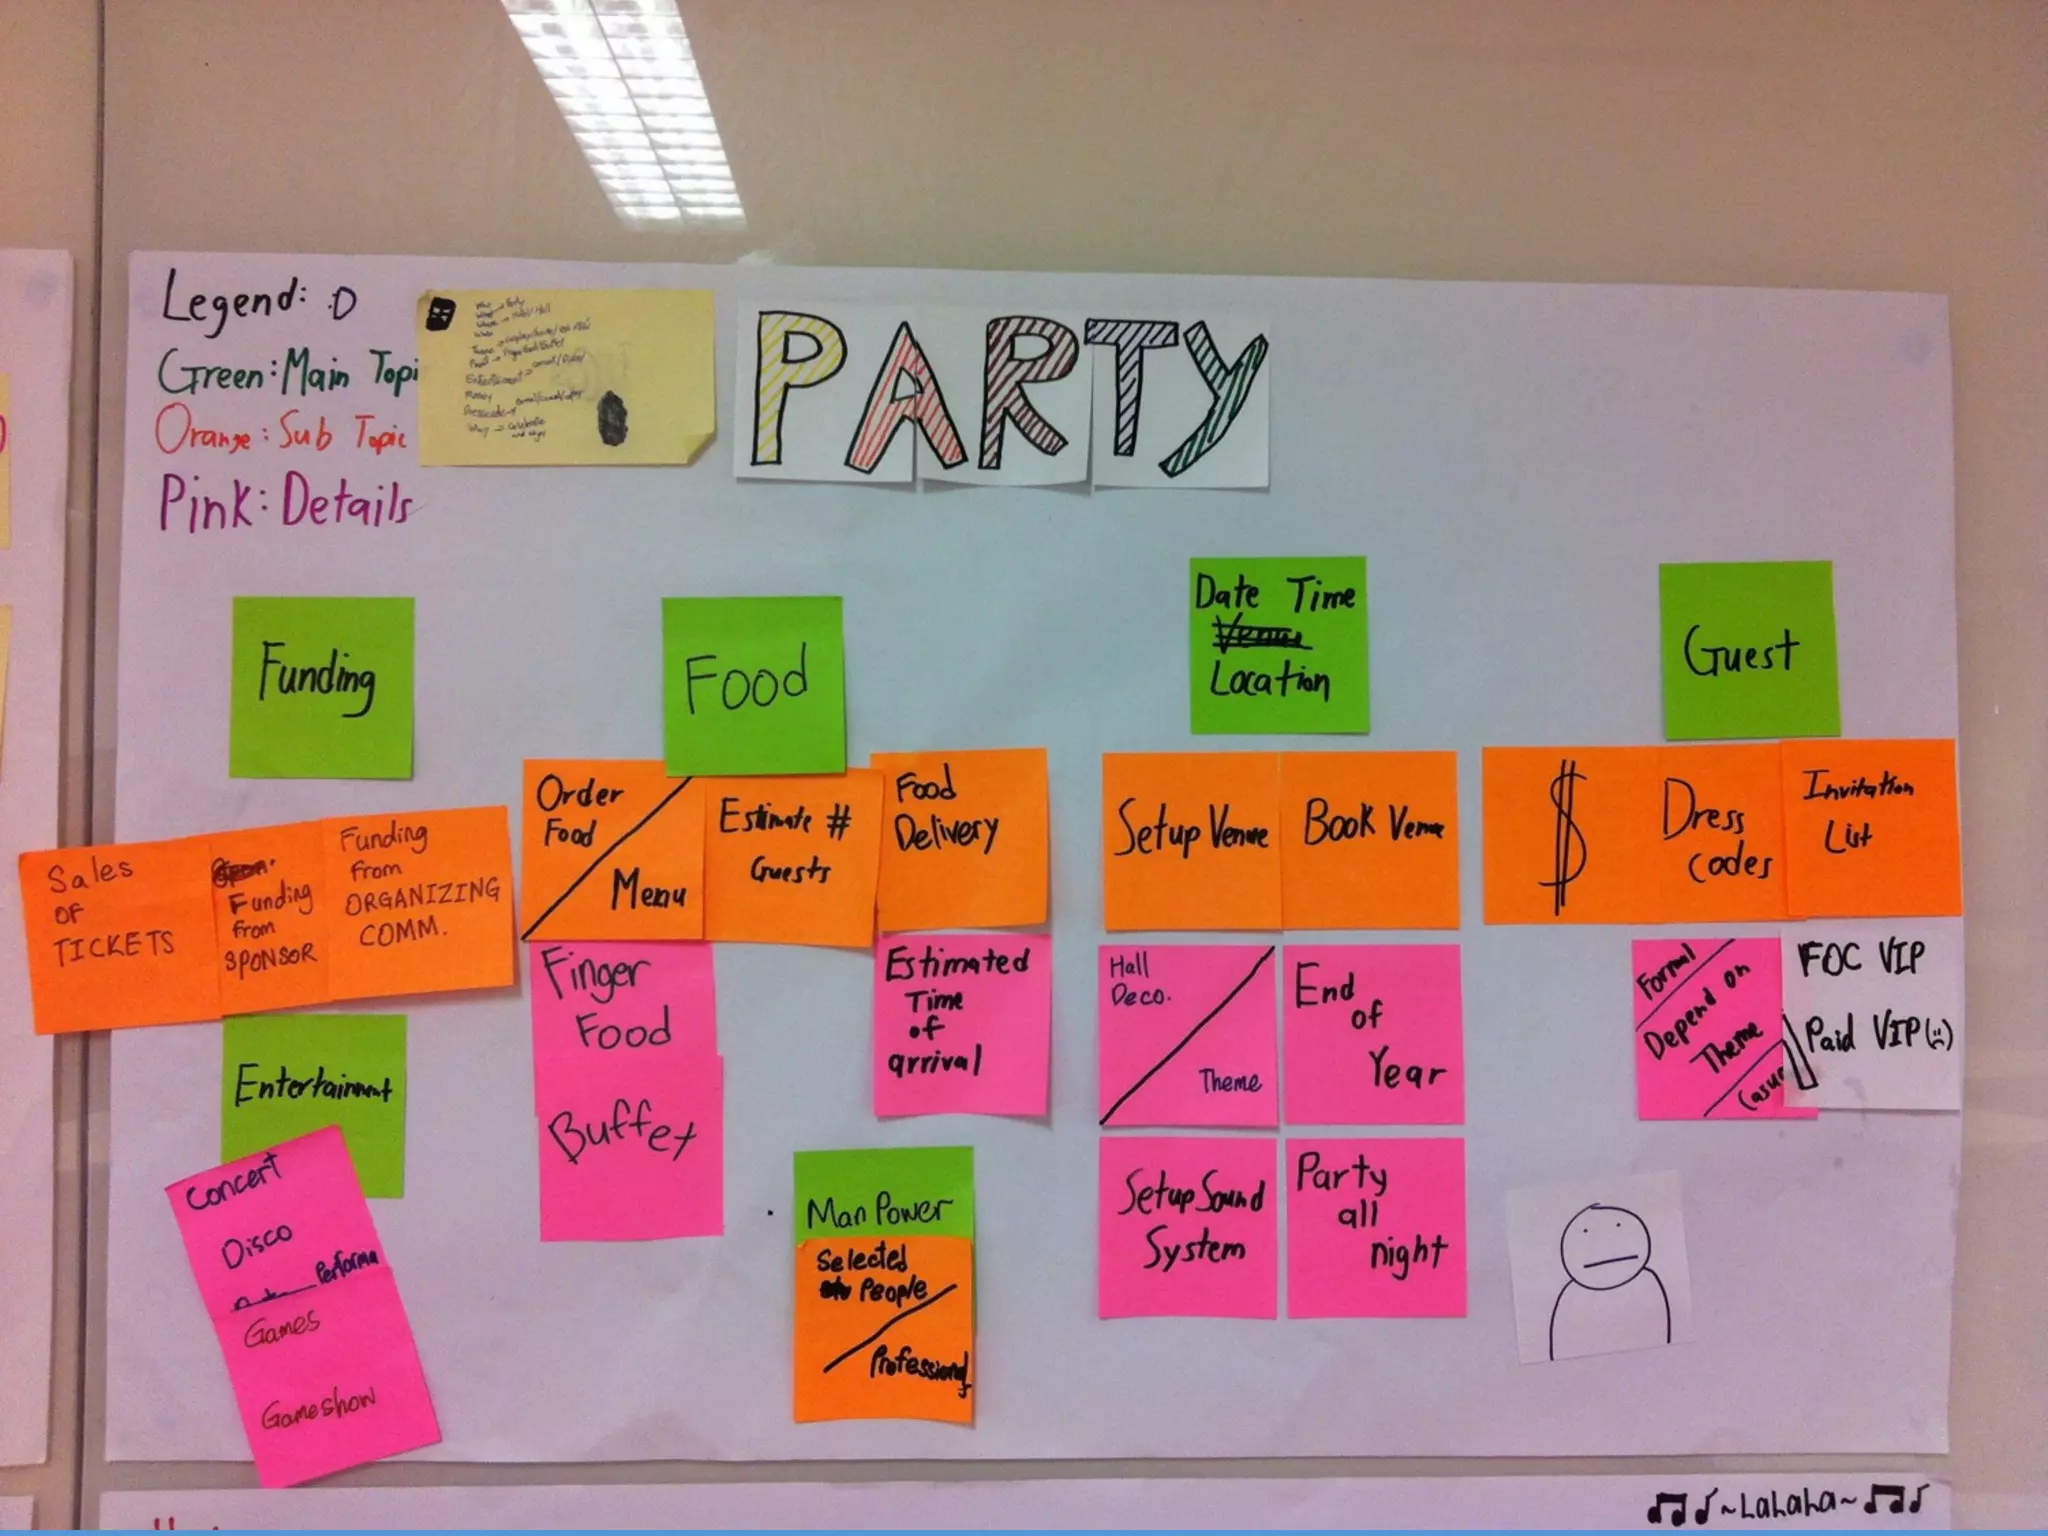 Legend: :D
Green: Main Topi
Orange: Sub Topic
Pink: Details
Party
Hall
Food
Entertainment
Money
Dresscode
Why → Celebrate
PARTY
Funding
Sales
OF
TICKETS
Funding
from
SPONSOR
Funding
from
ORGANIZING
COMM.
Entertainment
Concert
Disco
Performa
Games
Gameshow
Food
Order
Food
Menu
Estimate #
Guests
Food
Delivery
Finger
Food
Buffet
Estimated
Time
of
arrival
Man Power
Selected
People
Professional
Date Time
Venue
Location
Setup Venue
Book Venue
Hall
Deco.
Theme
End
of
Year
Setup Sound
System
Party
all
night
Guest
$
Dress
codes
Invitation
List
Formal
Depend on
Theme
Casu
FOC VIP
Paid VIP (:()
~LaLaLa~